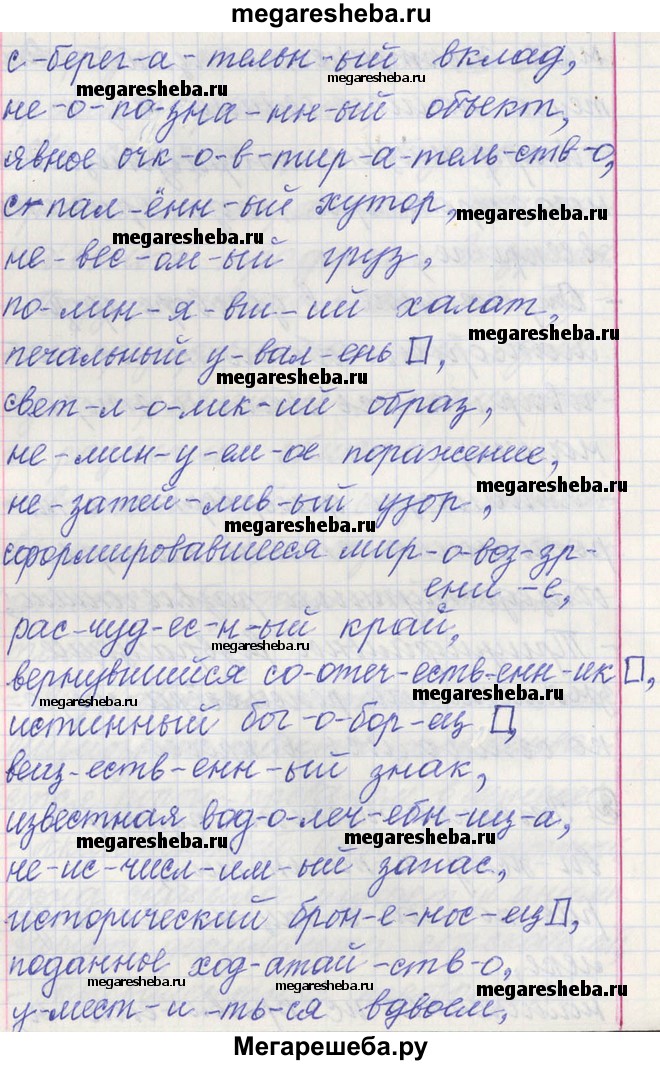 Мегарешеба.ру
megaresheba.ru
с-берег-а-тельн-ый вклад,
megaresheba.ru
megaresheba.ru
не-о-по-зна-нн-ый объект,
megaresheba.ru
явное очк-о-в-тир-а-тель-ств-о,
с-пал-ённ-ый хутор,
megaresheba.ru
megaresheba.ru
не-вес-ом-ый груз,
по-лин-я-вш-ий халат,
megaresheba.ru
печальный у-вал-ень□,
megaresheba.ru
свет-л-о-лик-ий образ,
не-мин-у-ем-ое поражение,
megaresheba.ru
не-затей-лив-ый узор,
megaresheba.ru
сформировавшееся мир-о-воз-зр-
ени-е,
рас-чуд-ес-н-ый край,
вернувшийся со-отеч-еств-енн-ик□,
megaresheba.ru
megaresheba.ru
истинный бог-о-бор-ец□,
вещ-еств-енн-ый знак,
известная вод-о-леч-ебн-иц-а,
megaresheba.ru
megaresheba.ru
не-ис-числ-им-ый запас,
исторический брон-е-нос-ец□,
поданное ход-атай-ств-о,
megaresheba.ru
megaresheba.ru
у-мест-и-ть-ся вдвоем,
megaresheba.ru
Мегарешеба.ру